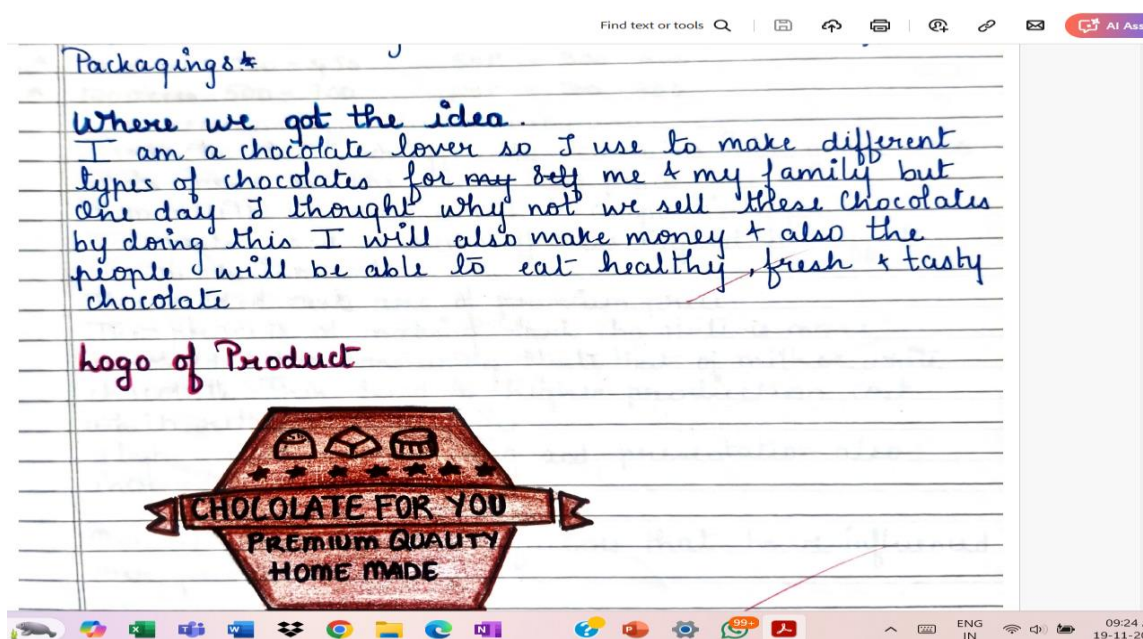 Find text or tools
AI Ass
Packagings
Where we got the idea.
I am a chocolate lover so I use to make different
types of chocolates for my self me & my family but
one day I thought why not we sell these chocolates
by doing this I will also make money & also the
people will be able to eat healthy, fresh & tasty
chocolate
Logo of Product
CHOCOLATE FOR YOU
PREMIUM QUALITY
HOME MADE
99+
ENG
IN
09:24
19-11